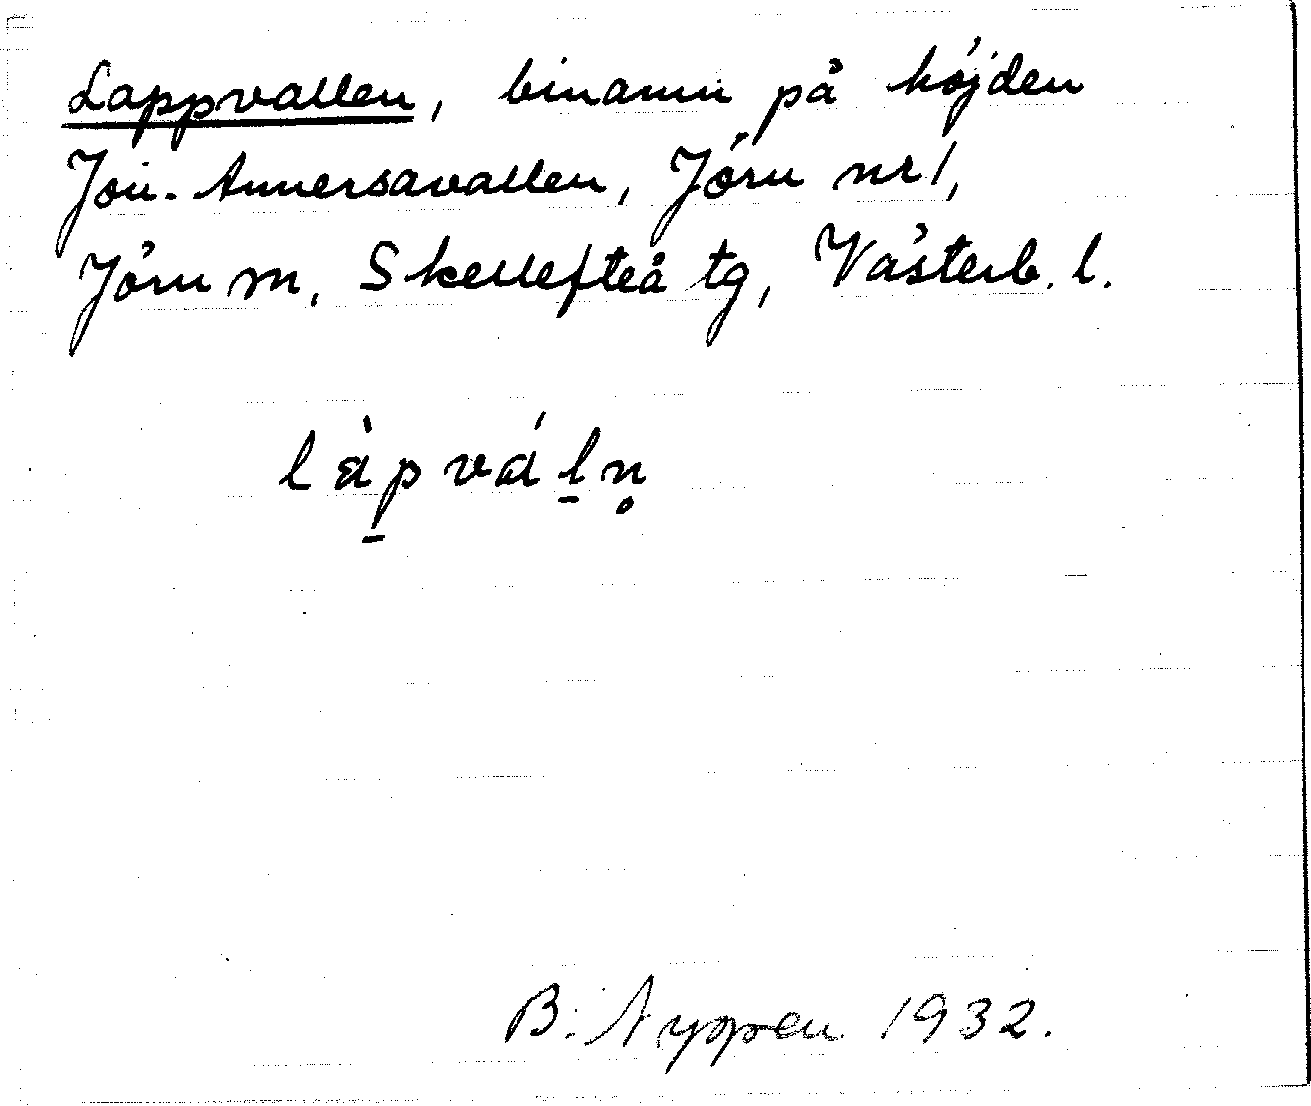 Lappvallen, binamn på höjden
Jon-Annersavallen, Jörn nr 1,
Jörn sn, Skellefteå tg, Västerb. l.
làp̲váḻn̥
B. Nyppen 1932.